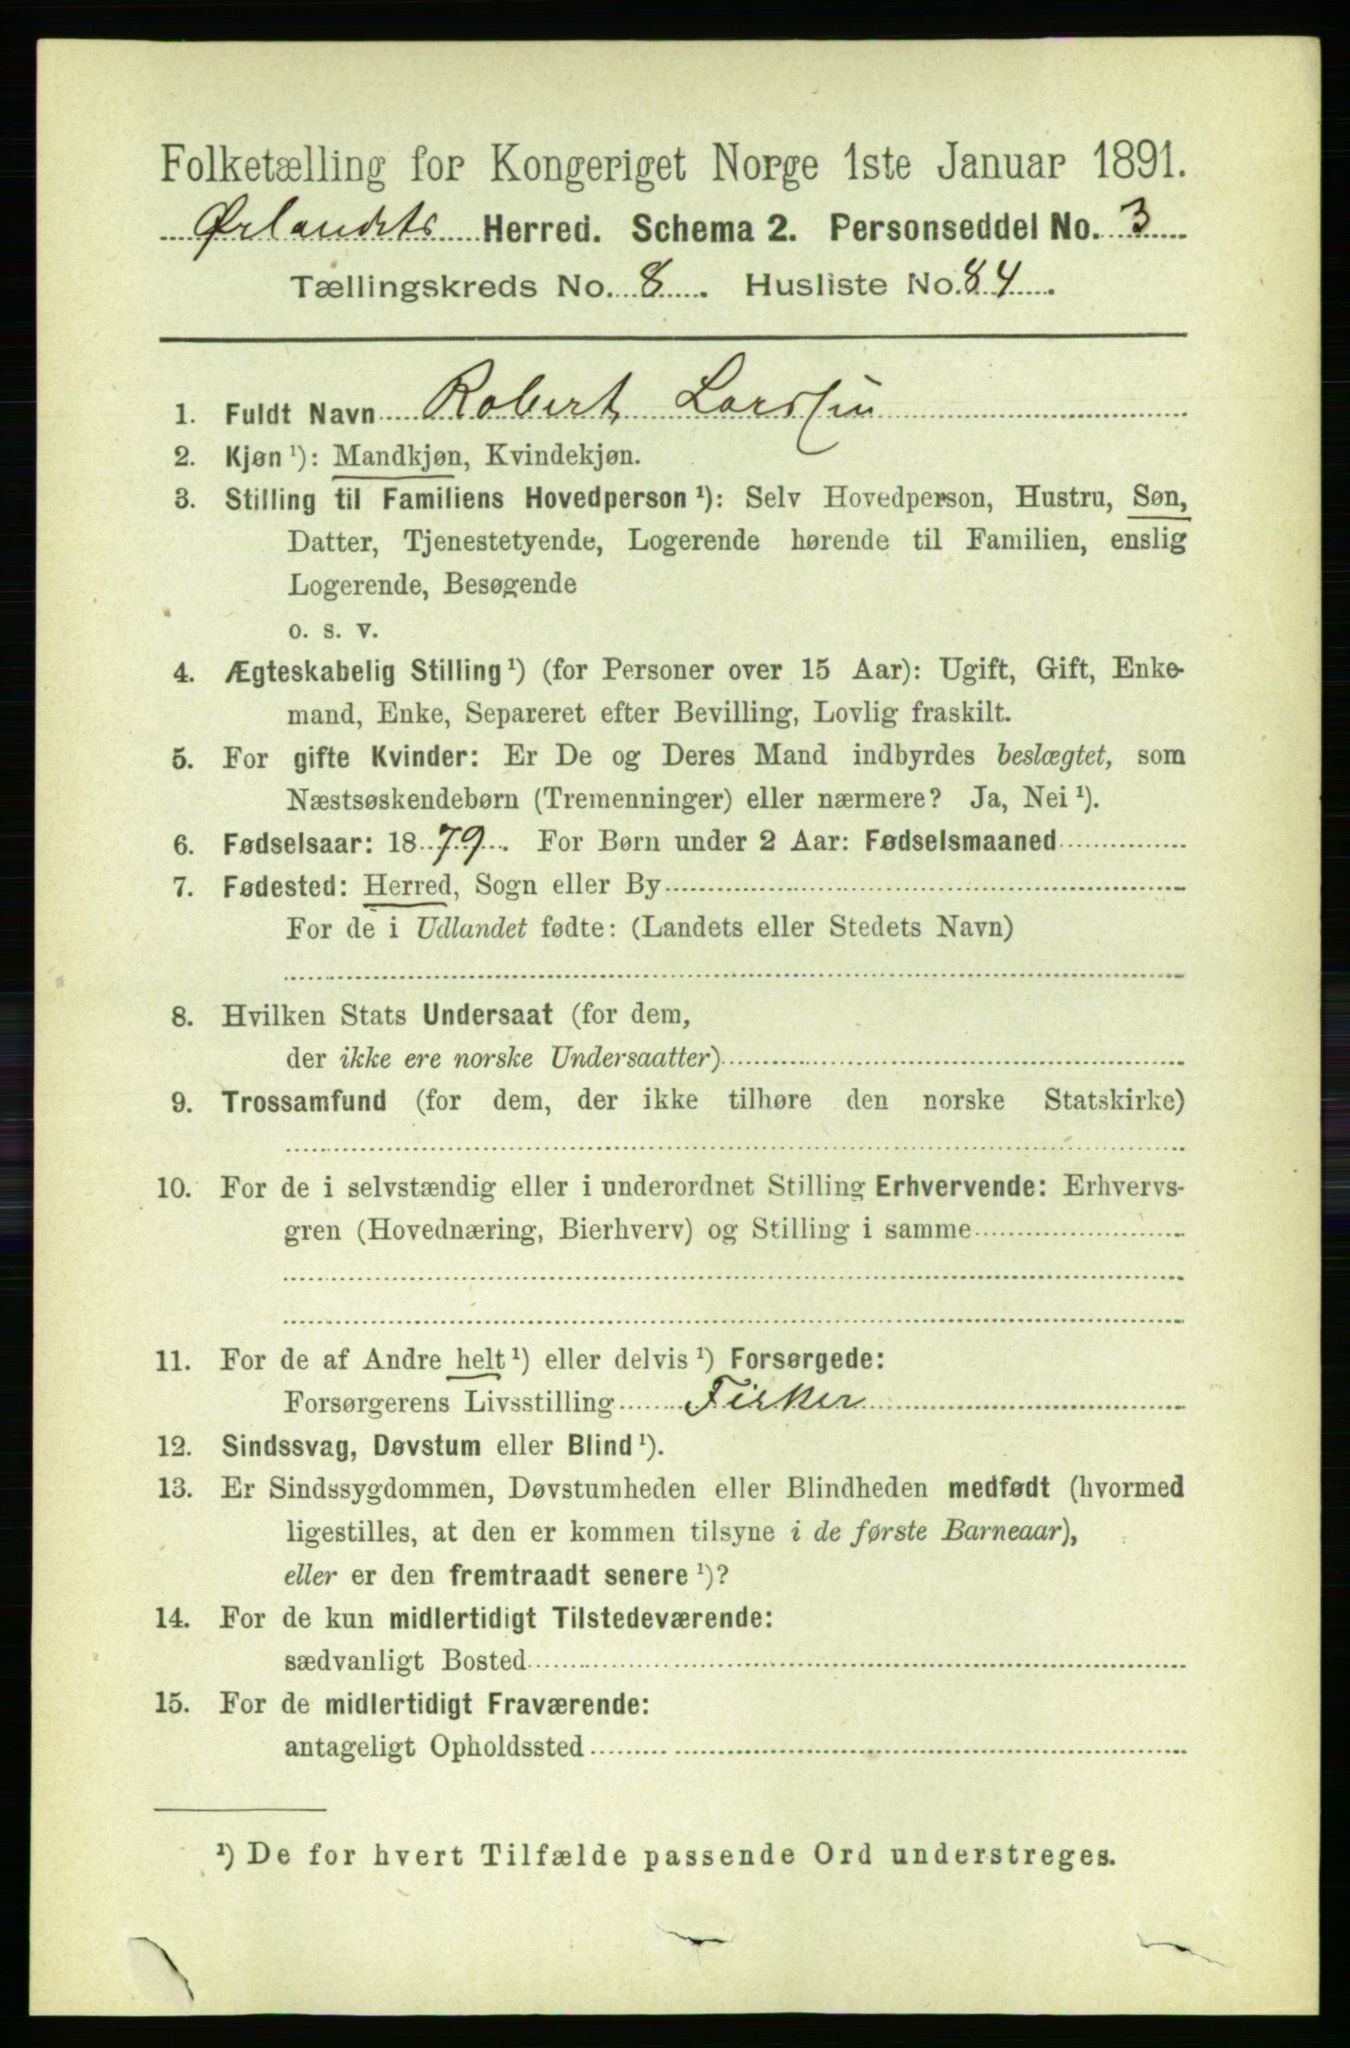 Folketælling for Kongeriget Norge 1ste Januar 1891.
Ørlandets Herred. Schema 2. Personseddel No. 3
Tællingskreds No. 8. Husliste No. 84.
1. Fuldt Navn Robert Larssen
2. Kjøn ¹): Mandkjøn, Kvindekjøn.
3. Stilling til Familiens Hovedperson ¹): Selv Hovedperson, Hustru, Søn,
Datter, Tjenestetyende, Logerende hørende til Familien, enslig
Logerende, Besøgende
o. s. v.
4. Ægteskabelig Stilling ¹) (for Personer over 15 Aar): Ugift, Gift, Enke-
mand, Enke, Separeret efter Bevilling, Lovlig fraskilt.
5. For gifte Kvinder: Er De og Deres Mand indbyrdes beslægtet, som
Næstsøskendebørn (Tremenninger) eller nærmere? Ja, Nei ¹).
6. Fødselsaar: 1879. For Børn under 2 Aar: Fødselsmaaned
7. Fødested: Herred, Sogn eller By
For de i Udlandet fødte: (Landets eller Stedets Navn)
8. Hvilken Stats Undersaat (for dem,
der ikke ere norske Undersaatter)
9. Trossamfund (for dem, der ikke tilhøre den norske Statskirke)
10. For de i selvstændig eller i underordnet Stilling Erhvervende: Erhvervs-
gren (Hovednæring, Bierhverv) og Stilling i samme
11. For de af Andre helt ¹) eller delvis ¹) Forsørgede:
Forsørgerens Livsstilling Fisker
12. Sindssvag, Døvstum eller Blind ¹).
13. Er Sindssygdommen, Døvstumheden eller Blindheden medfødt (hvormed
ligestilles, at den er kommen tilsyne i de første Barneaar),
eller er den fremtraadt senere ¹)?
14. For de kun midlertidigt Tilstedeværende:
sædvanligt Bosted
15. For de midlertidigt Fraværende:
antageligt Opholdssted
¹) De for hvert Tilfælde passende Ord understreges.